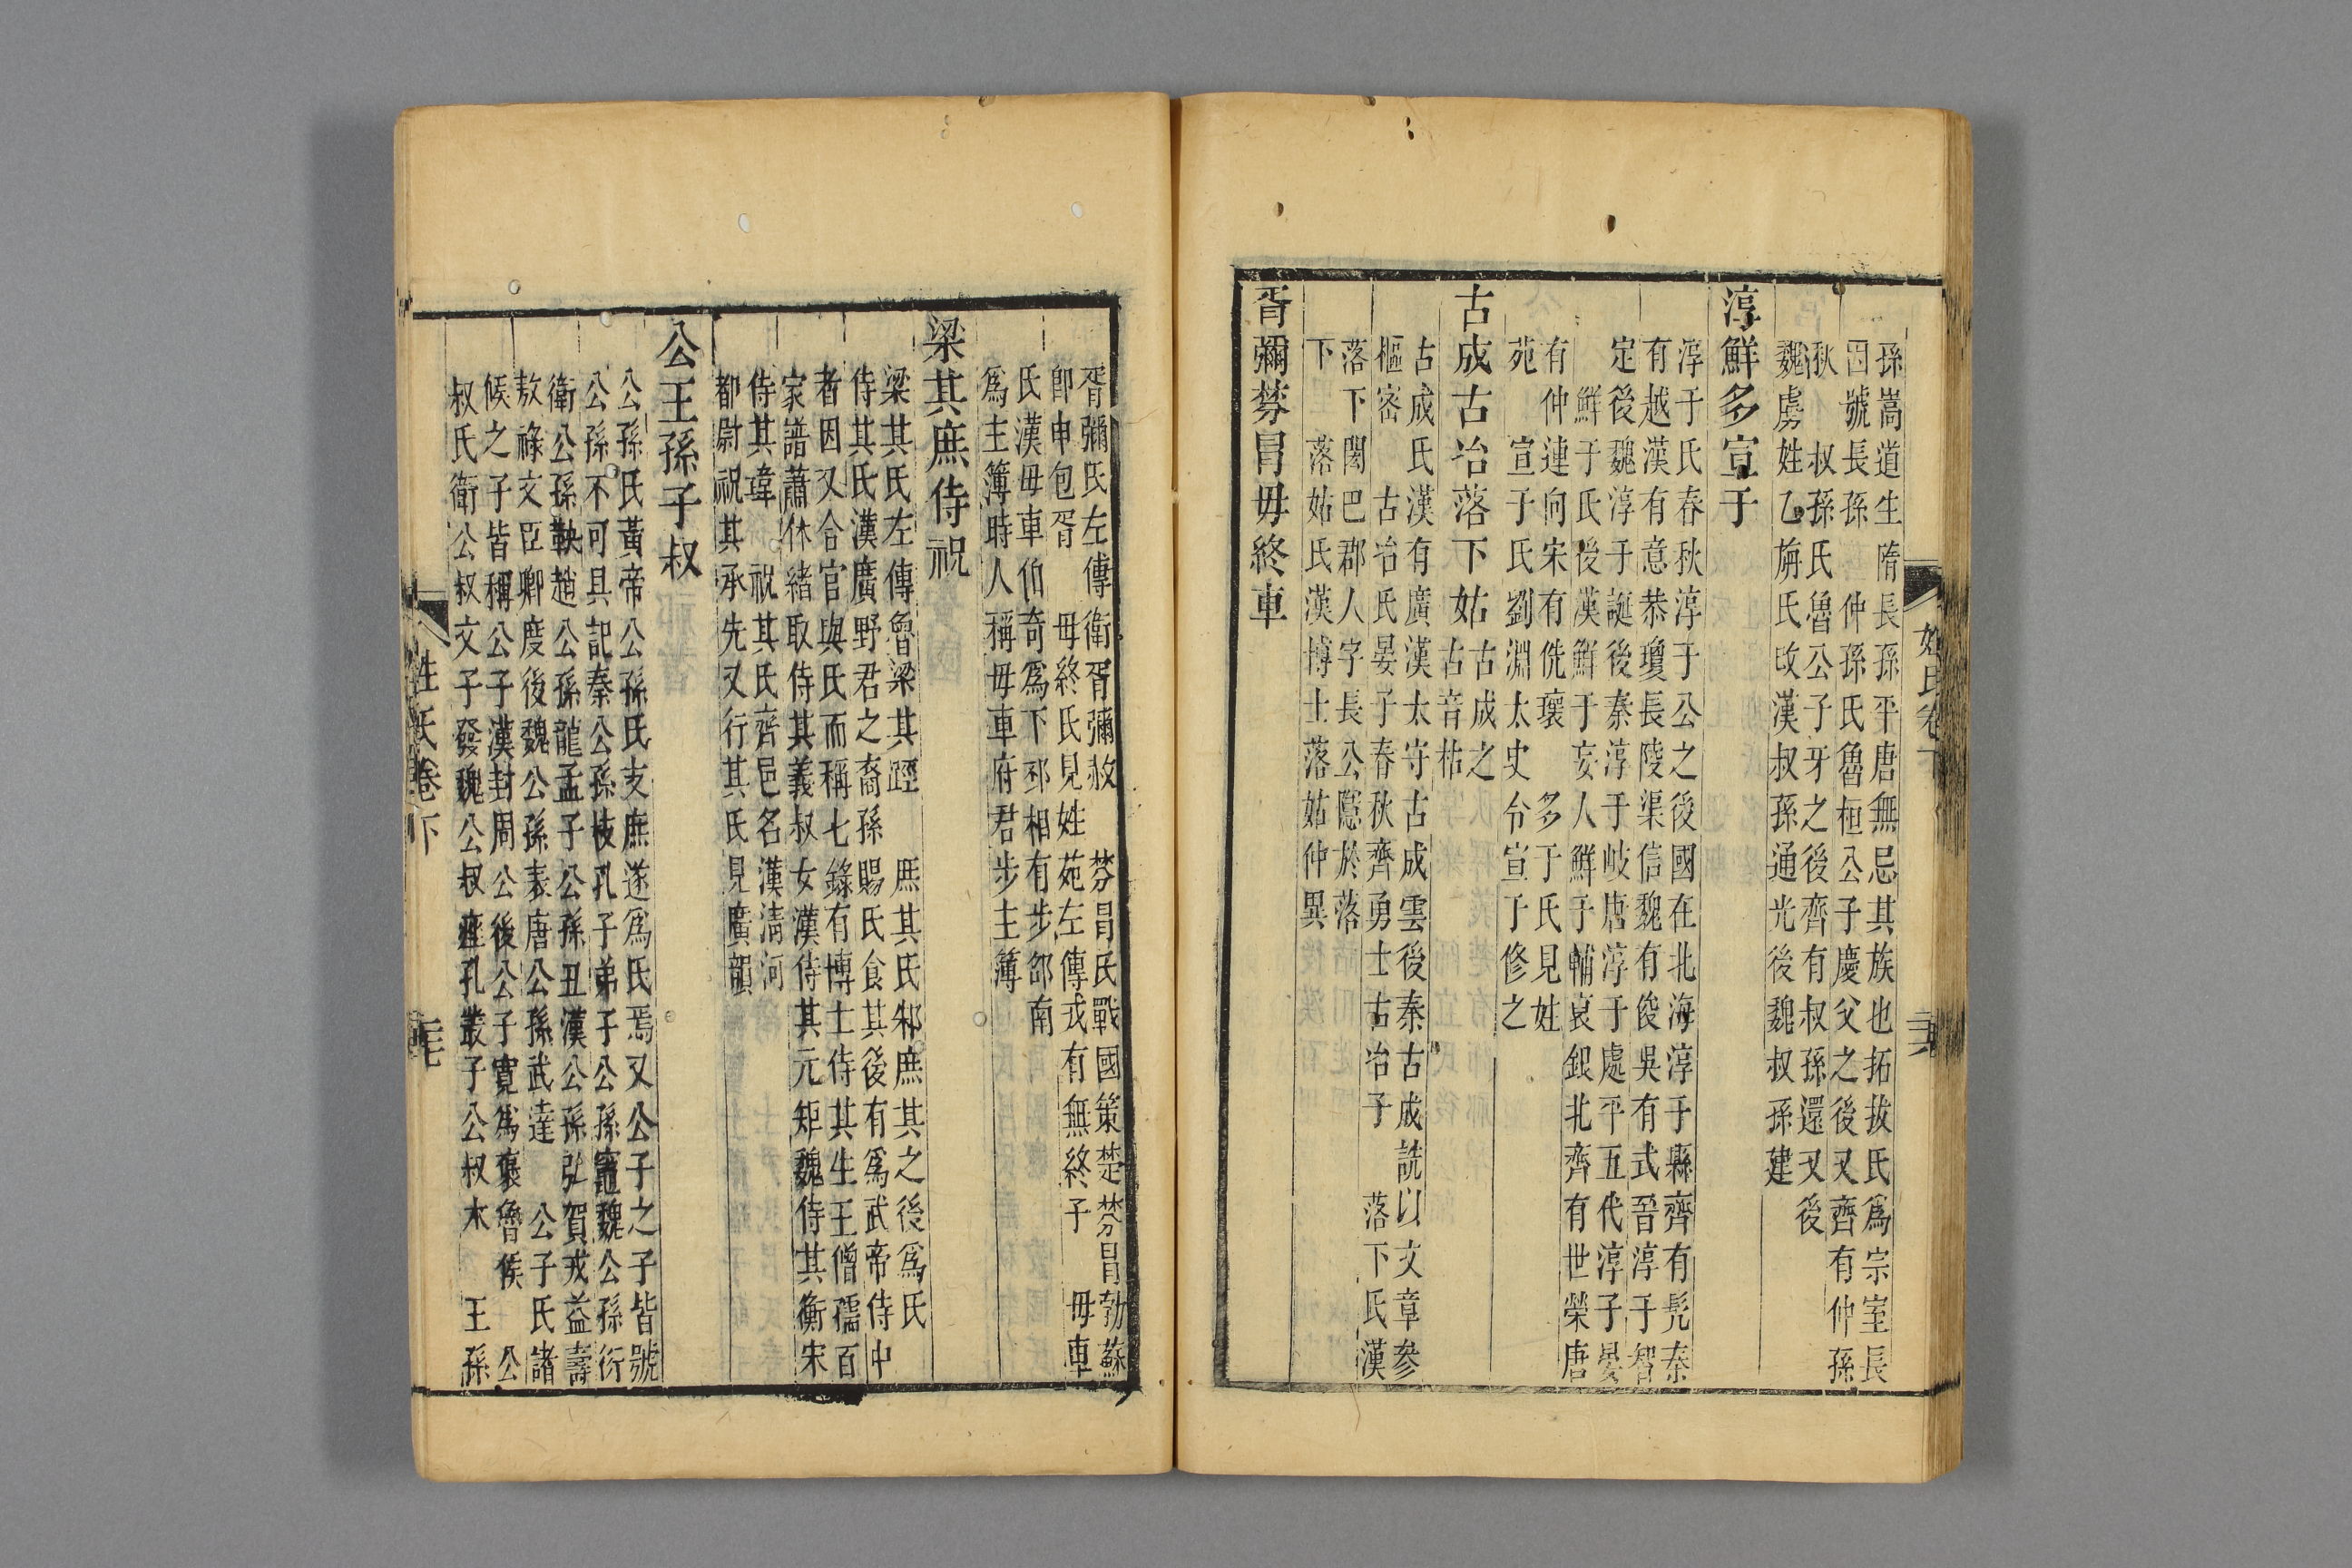 孫嵩道生隋長孫平唐無忌其族也拓拔氏爲宗室長
因號長孫　仲孫氏魯桓公子慶父之後又齊有仲孫
狄　叔孫氏魯公子牙之後齊有叔孫還又後
魏虜姓乙旃氏改漢叔孫通光後魏叔孫建
淳鮮多宣于
淳于氏春秋淳于公之後國在北海淳于縣齊有髡秦
有越漢有意恭瓊長陵渠信魏有俊吳有式晉淳于智
定後魏淳于誕後秦淳于岐唐淳于處平五代淳于晏
鮮于氏後漢鮮于妄人鮮于輔裒銀北齊有世榮唐
有仲連向宋有侁瓌　多于氏見姓
苑　宣于氏劉淵太史令宣于修之
古成古冶落下姑古成之
古音枯
古成氏漢有廣漢太守古成雲後秦古成詵以文章參
樞密　古冶氏晏子春秋齊勇士古冶子　落下氏漢
落下閎巴郡人字長公隱於落
下　落姑氏漢博士落姑仲異
胥彌芬冒毋終車
姓氏卷下
胥彌氏左傳衛胥彌赦　芬冒氏戰國策楚棼冒勃蘇
卽申包胥　毋終氏見姓苑左傳戎有無終子　毋車
氏漢毋車伯奇爲下邳相有步郃南
爲主簿時人稱毋車府君步主簿
梁其庶侍祝
梁其氏左傳魯梁其踁　庶其氏邾庶其之後爲氏
侍其氏漢廣野君之裔孫賜氏食其後有爲武帝侍中
者因又合官與氏而稱七錄有博士侍其生王僧孺百
家譜蕭休緒取侍其義叔女漢侍其元矩魏侍其衡宋
侍其瑋　祝其氏齊邑名漢淸河
都尉祝其承先又行其氏見廣韻
公王孫子叔
公孫氏黃帝公孫氏支庶遂爲氏焉又公子之子皆號
公孫不可具記秦公孫枝孔子弟子公孫龍魏公孫衍
衛公孫鞅趙公孫龍孟子公孫丑漢公孫弘賀戎益壽
敖祿文臣卿度後魏公孫表唐公孫武達　公子氏諸
候之子皆稱公子漢封周公後公子寬爲襃魯侯　公
叔氏衛公叔文子發魏公叔痤孔叢子公叔木　王孫
姓氏卷下